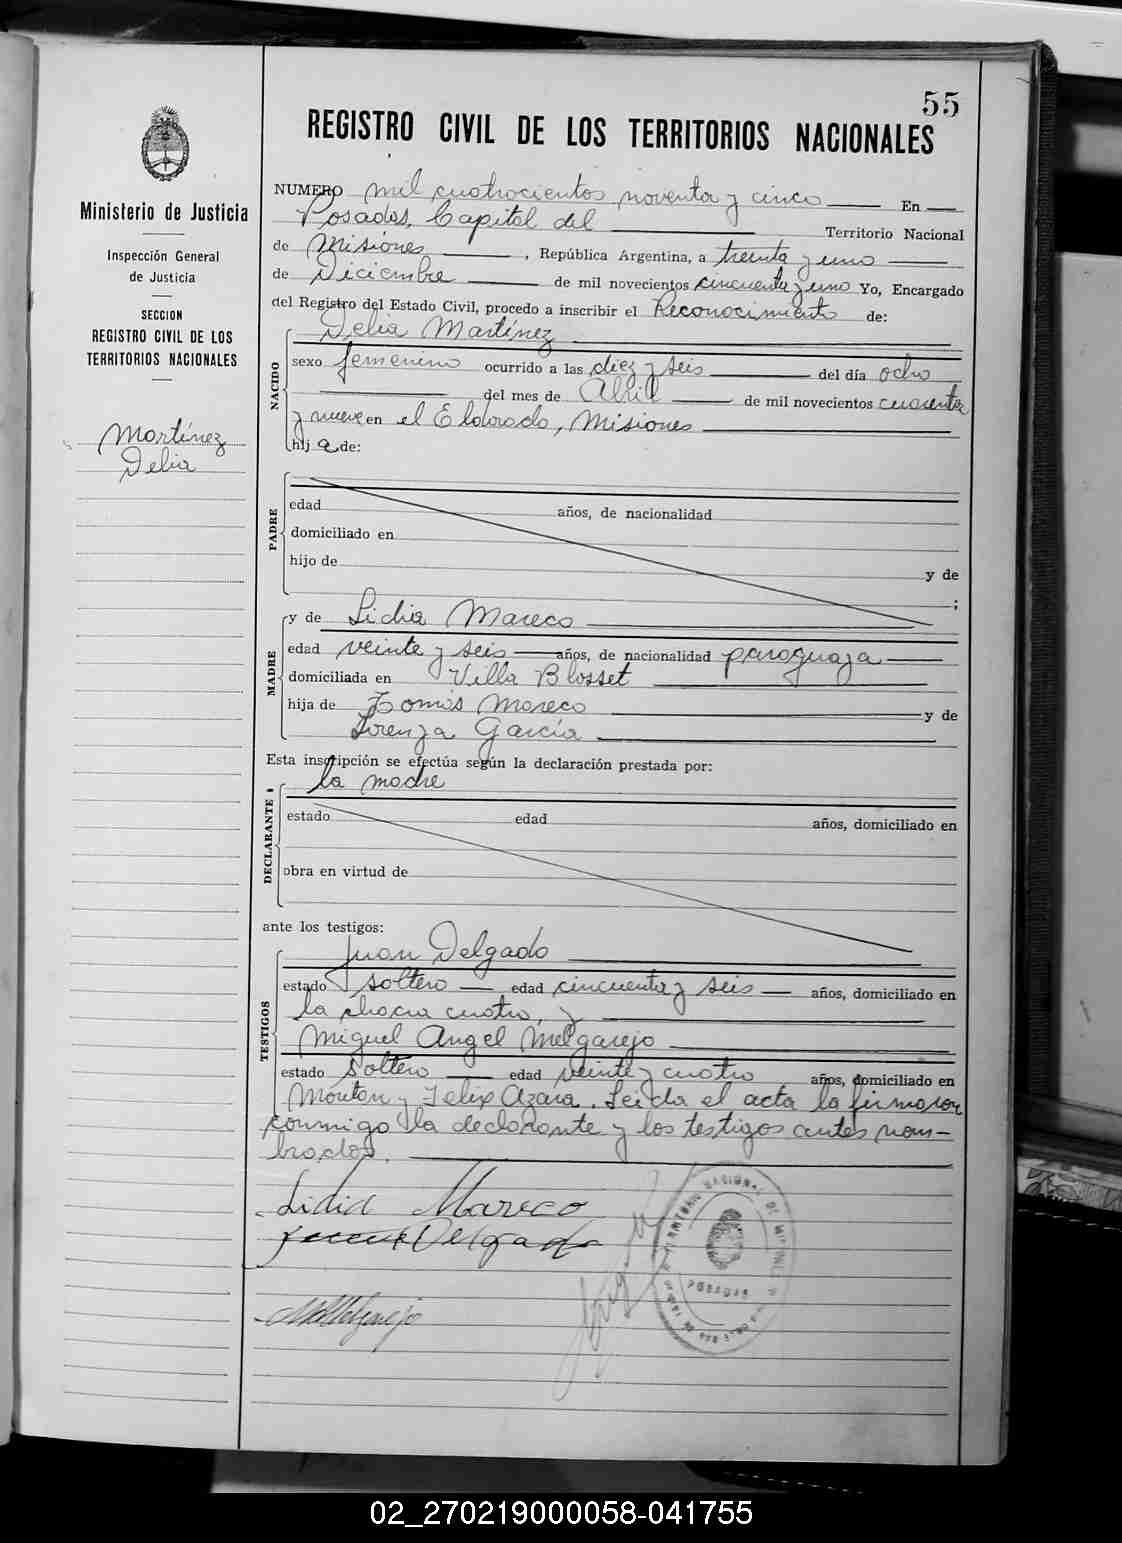 55
REGISTRO CIVIL DE LOS TERRITORIOS NACIONALES
Ministerio de Justicia
Inspección General
de Justicia
SECCION
REGISTRO CIVIL DE LOS
TERRITORIOS NACIONALES
Martínez
Delia
NUMERO mil cuatrocientos noventa y cinco En
Posadas, Capital del Territorio Nacional
de Misiones, República Argentina, a treinta y uno
de Diciembre de mil novecientos cincuenta y uno Yo, Encargado
del Registro del Estado Civil, procedo a inscribir el Reconocimiento de:
NACIDO
Delia Martínez
sexo femenino ocurrido a las diez y seis del día ocho
del mes de Abril de mil novecientos cuarenta
y nueve en el Eldorado, Misiones
hij a de:
PADRE
edad años, de nacionalidad
domiciliado en
hijo de y de
;
MADRE
y de Lidia Mareco
edad veinte y seis años, de nacionalidad paraguaya
domiciliada en Villa Blosset
hija de Tomás Mareco y de
Lorenza García
Esta inscripción se efectúa según la declaración prestada por:
la madre
DECLARANTE
estado edad años, domiciliado en
obra en virtud de
ante los testigos:
TESTIGOS
Juan Delgado
estado soltero edad cincuenta y seis años, domiciliado en
la chacra cuatro, y
Miguel Angel Melgarejo
estado soltero edad veinte y cuatro años, domiciliado en
Montan y Felix Azara. Leída el acta la firmaron
conmigo la declarante y los testigos antes nom-
brados.
Lidia Mareco
Delgado
MAMelgarejo
TERRITORIO NACIONAL DE MISIONES
POSADAS
02_270219000058-041755